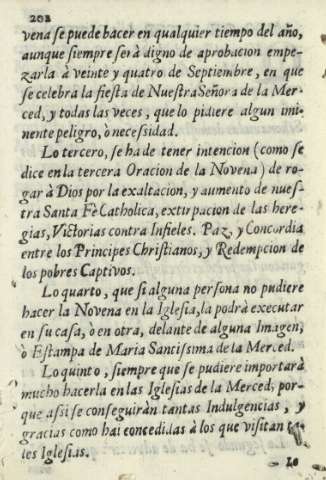 202
vena se puede hacer en qualquier tiempo del año,
aunque siempre serà digno de aprobacion empe-
zarla à veinte y quatro de Septiembre, en que
se celebra la fiesta de Nuestra Señora de la Mer-
ced, y todas las veces, que lo pidiere algun imi-
nente peligro, ò necessidad.
Lo tercero, se ha de tener intencion (como se
dice en la tercera Oracion de la Novena) de ro-
gar à Dios por la exaltacion, y aumento de nues-
tra Santa Fè Catholica, extirpacion de las here-
gias, Victorias contra Infieles. Paz, y Concordia
entre los Principes Christianos, y Redempcion de
los pobres Captivos.
Lo quarto, que si alguna persona no pudiere
hacer la Novena en la Iglesia, la podrà executar
en su casa, ò en otra, delante de alguna Imagen,
ò Estampa de Maria Santissima de la Merced.
Lo quinto, siempre que se pudiere importarà
mucho hacerla en las Iglesias de la Merced, por-
que assi se conseguiràn tantas Indulgencias, y
gracias como hai concedidas à los que visitan ta-
les Iglesias.
Lo